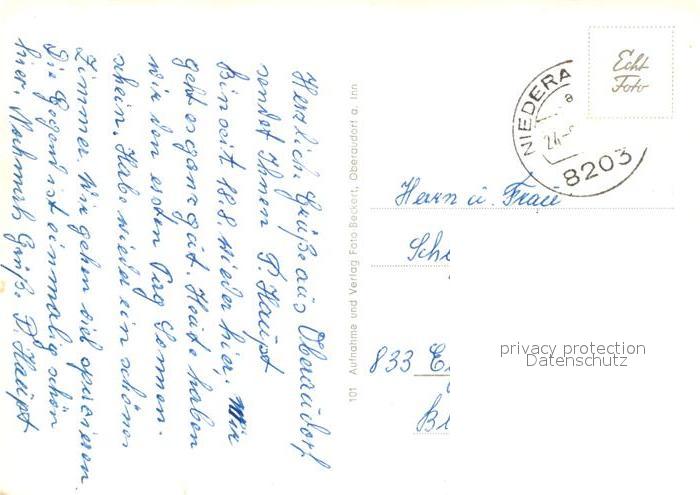 Herzlich. Grüße aus Oberaudorf
sendet Ihnen P. Haupt
Bin seit 18.8. wieder hier. Mir
geht es ganz gut. Heute haben
wir den ersten Tag Sonnen-
schein. Habe wieder ein schönes
Zimmer. Wir gehen viel spazieren.
Die Gegend ist einmalig schön
hier. Nochmals Grüß. P. Haupt
101 Aufnahme und Verlag Foto Beckert, Oberaudorf a. Inn
Echt
Foto
NIEDERA
8203
Herrn u. Frau
Sche
833 E
privacy protection
Datenschutz